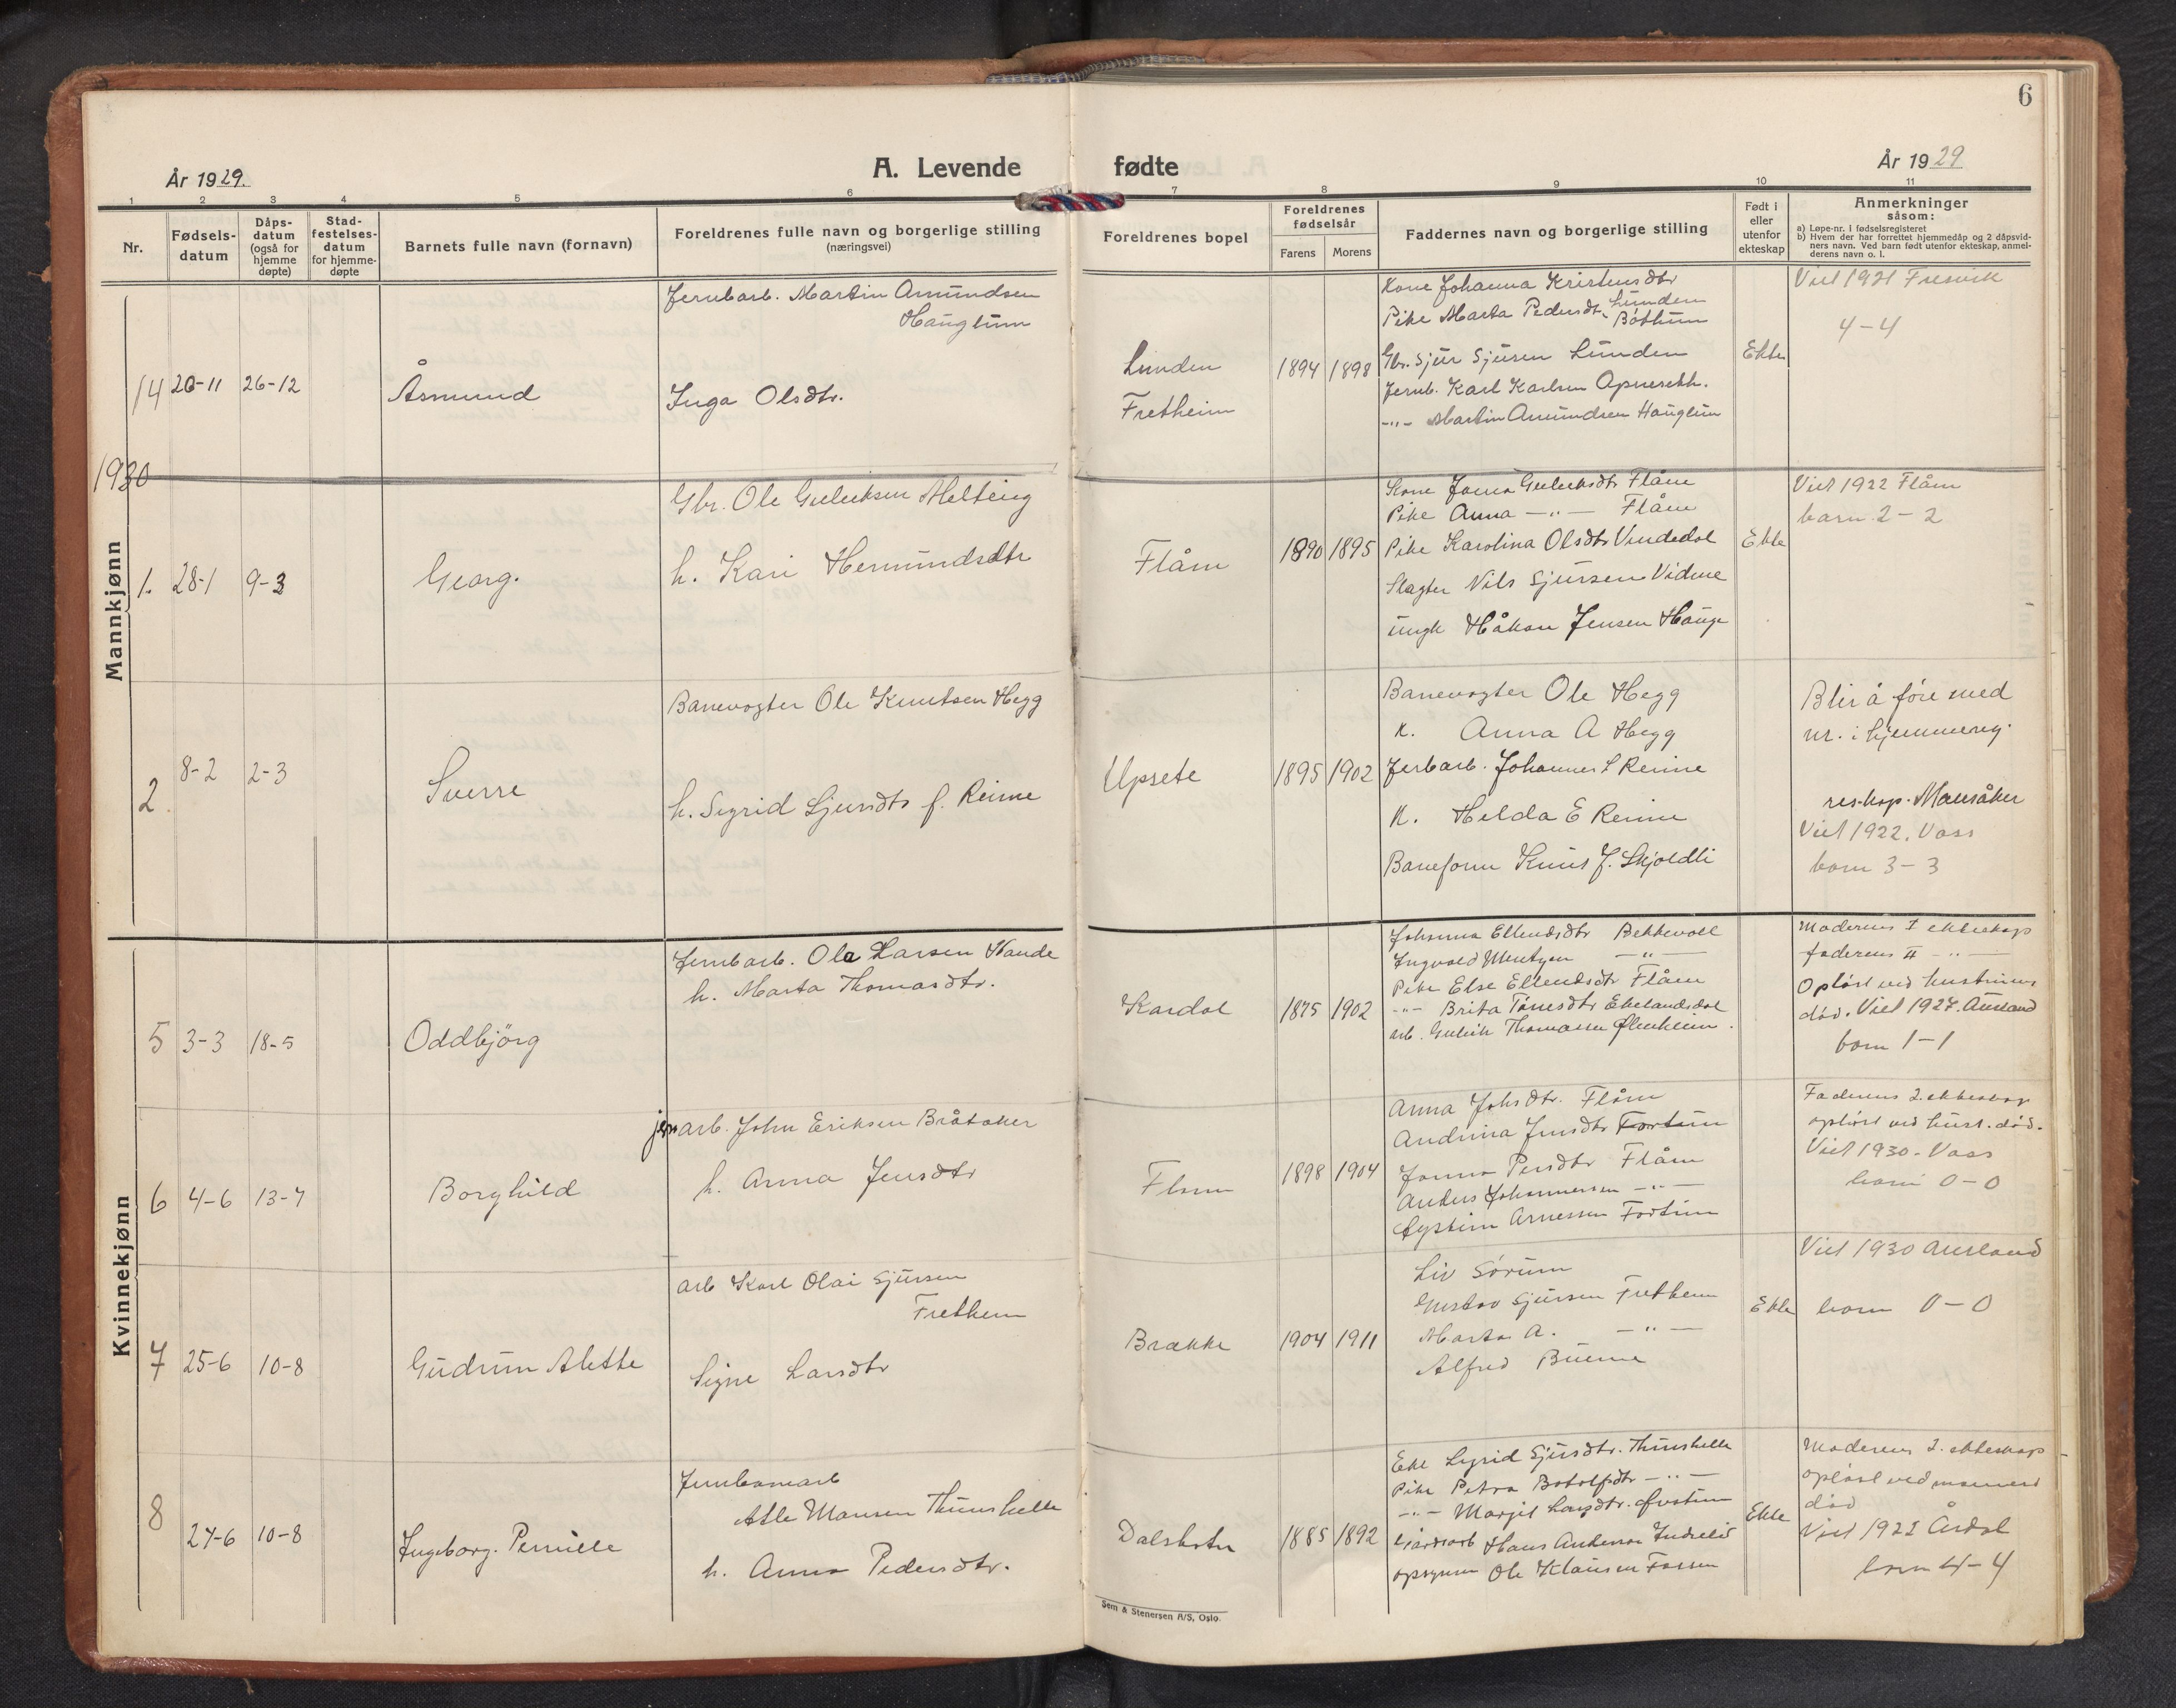 6
År 1929.
A. Levende fødte
År 1929
1 2 3 4 5 6 7 8 9 10 11
Nr.
Fødsels-
datum
Dåps-
datum
(også for
hjemme
døpte)
Stad-
festelses-
datum
for hjemme-
døpte
Barnets fulle navn (fornavn)
Foreldrenes fulle navn og borgerlige stilling
(næringsvei)
Foreldrenes bopel
Foreldrenes
fødselsår
Farens Morens
Faddernes navn og borgerlige stilling
Født i
eller
utenfor
ekteskap
Anmerkninger
såsom:
a) Løpe-nr. i fødselsregisteret
b) Hvem der har forrettet hjemmedåp og 2 dåpsvid-
ners navn. Ved barn født utenfor ekteskap, anmel-
derens navn o. l.
Mannkjønn
14 20-11 26-12
Åsmund
Jernbarb. Martin Amundsen
Hauglum
Inga Olsdtr.
Lunden
Fretheim
1894 1898
Kone Johanna Kristensdtr
Lunden
Pike Marta Pedersdtr. Bøthun
Gbr. Sjur Sjursen Lunden
Jernb. Karl Karlsen
-"- Martin Amundsen Hauglum
Ekte
Viet 1921 Fresvik
4-4
1930
1. 28-1 9-3
Georg.
Gbr. Ole Guleiksen Melteig
h. Kari Hermundsdtr
Flåm
1890 1895
Kone Guleiksdtr Flåm
Pike Anna -"- Flåm
Pike Karolina Olsdtr Vindedal
Slagter Nils Sjursen Vidme
ungk Håkon Jensen Hauge
Ekte
Viet 1922 Flåm
barn 2-2
2. 8-2 2-3
Sverre
Banevogter Ole Knutsen Hegg
h. Sigrid Sjursdtr f. Reime
Upsete
1895 1902
Banevogter Ole Hegg
K. Anna A Hegg
Jerbarb. Johannes S Reime
K. Helda E Reime
Baneform J. Skjoldli
Blir å føre med
nr. i hjemmereg.
res.kap. Mansåker
Viet 1922. Voss
born 3-3
Kvinnekjønn
5 3-3 18-5
Oddbjörg
Jernbarb. Ola Larsen Hande
h. Marta Thomasdtr.
Kårdal
1875 1902
Johanna Ellendsdtr Bekkevoll
Ingvald Mentzen -"-
Pike Else Ellendsdtr Flåm
-"- Brita Tønesdtr Ekelandsdal
arb. Guleik Thomassen
Moderens I ekteskap
faderens II -"-
Opløst ved hustruens
död. Viet 1927. Aurland
born 1-1
6 4-6 13-7
Borghild
jernarb. John Eriksen Bråtåker
h. Anna Jensdtr
Flåm
1898 1904
Anna Johsdtr. Flåm
Andrina Jensdtr Fortun
Persdtr Flåm
Anders Johannessen -"-
Eystein Arnessen Fortun
Faderens 2. ekteskap
opløst ved hust. død.
Viet 1930. Voss
born 0-0
7 25-6 10-8
Gudrun Alette
arb Karl Olai Sjursen
Frethem
Signe Larsdtr
Brække
1904 1911
Liv Sørum
Gustav Sjursen Frethem
Marta A. -"-
Alfred
Ekte
Viet 1930 Aurland
born 0-0
8 27-6 10-8
Ingeborg. Pernille
Atle Monsen Thunshelle
h. Anna Pedersdtr.
1885 1892
Sigrid Sjursdtr. Thunshelle
Pike Petra Botolfsdtr -"-
-"- Margit Larsdtr.
Hans Andersen
Ole Klausen Fossen
Ekte
Moderens 2. ekteskap
opløst ved mannens
död
Viet 1922 Årdal
born 4-4
Sem & Stenersen A/S, Oslo.